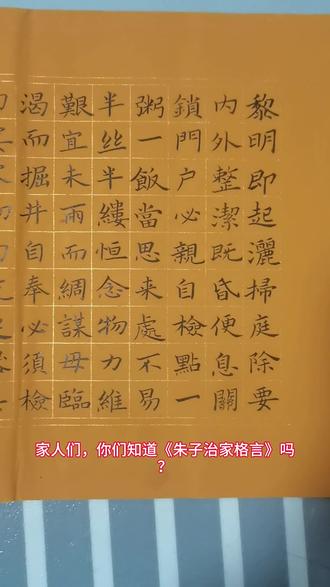 黎明即起灑掃庭除要
内外整潔既昏便息關
鎖門户必親自檢點一
粥一飯當思来處不易
半丝半縷恒念物力維
艱宜未雨而綢謀毋臨
渴而掘井自奉必須檢
家人们，你们知道《朱子治家格言》吗
？